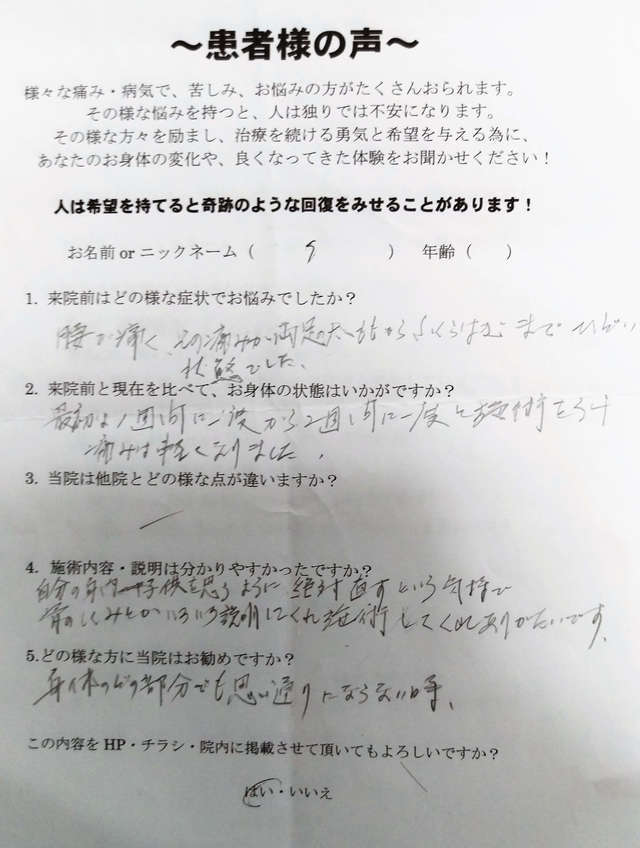 ～患者様の声～
様々な痛み・病気で、苦しみ、お悩みの方がたくさんおられます。
その様な悩みを持つと、人は独りでは不安になります。
その様な方々を励まし、治療を続ける勇気と希望を与える為に、
あなたのお身体の変化や、良くなってきた体験をお聞かせください！
人は希望を持てると奇跡のような回復をみせることがあります！
お名前 or ニックネーム（ ） 年齢（ ）
1. 来院前はどの様な症状でお悩みでしたか？
腰が痛く、その痛みが両足の太ももからふくらはぎまでひどい
状態でした、
2. 来院前と現在を比べて、お身体の状態はいかがですか？
最初は1週間に一度から2週間に一度と施術をうけ
痛みは軽くなりました、
3. 当院は他院とどの様な点が違いますか？
4. 施術内容・説明は分かりやすかったですか？
自分の 子供を思うように 絶対直すという気持で
骨のしくみとかいろいろ説明してくれ施術してくれありがたいです、
5.どの様な方に当院はお勧めですか？
身体のどの部分でも思い通りにならない時、
この内容を HP・チラシ・院内に掲載させて頂いてもよろしいですか？
はい・いいえ